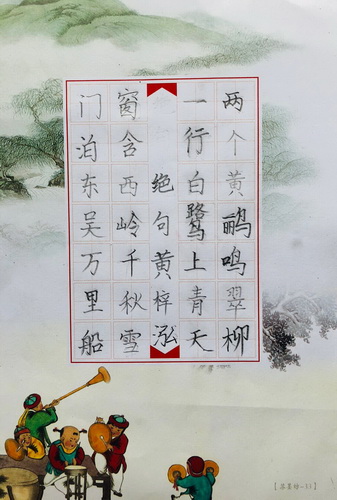 两个黄鹂鸣翠柳
一行白鹭上青天
绝句黄梓泓
窗含西岭千秋雪
门泊东吴万里船